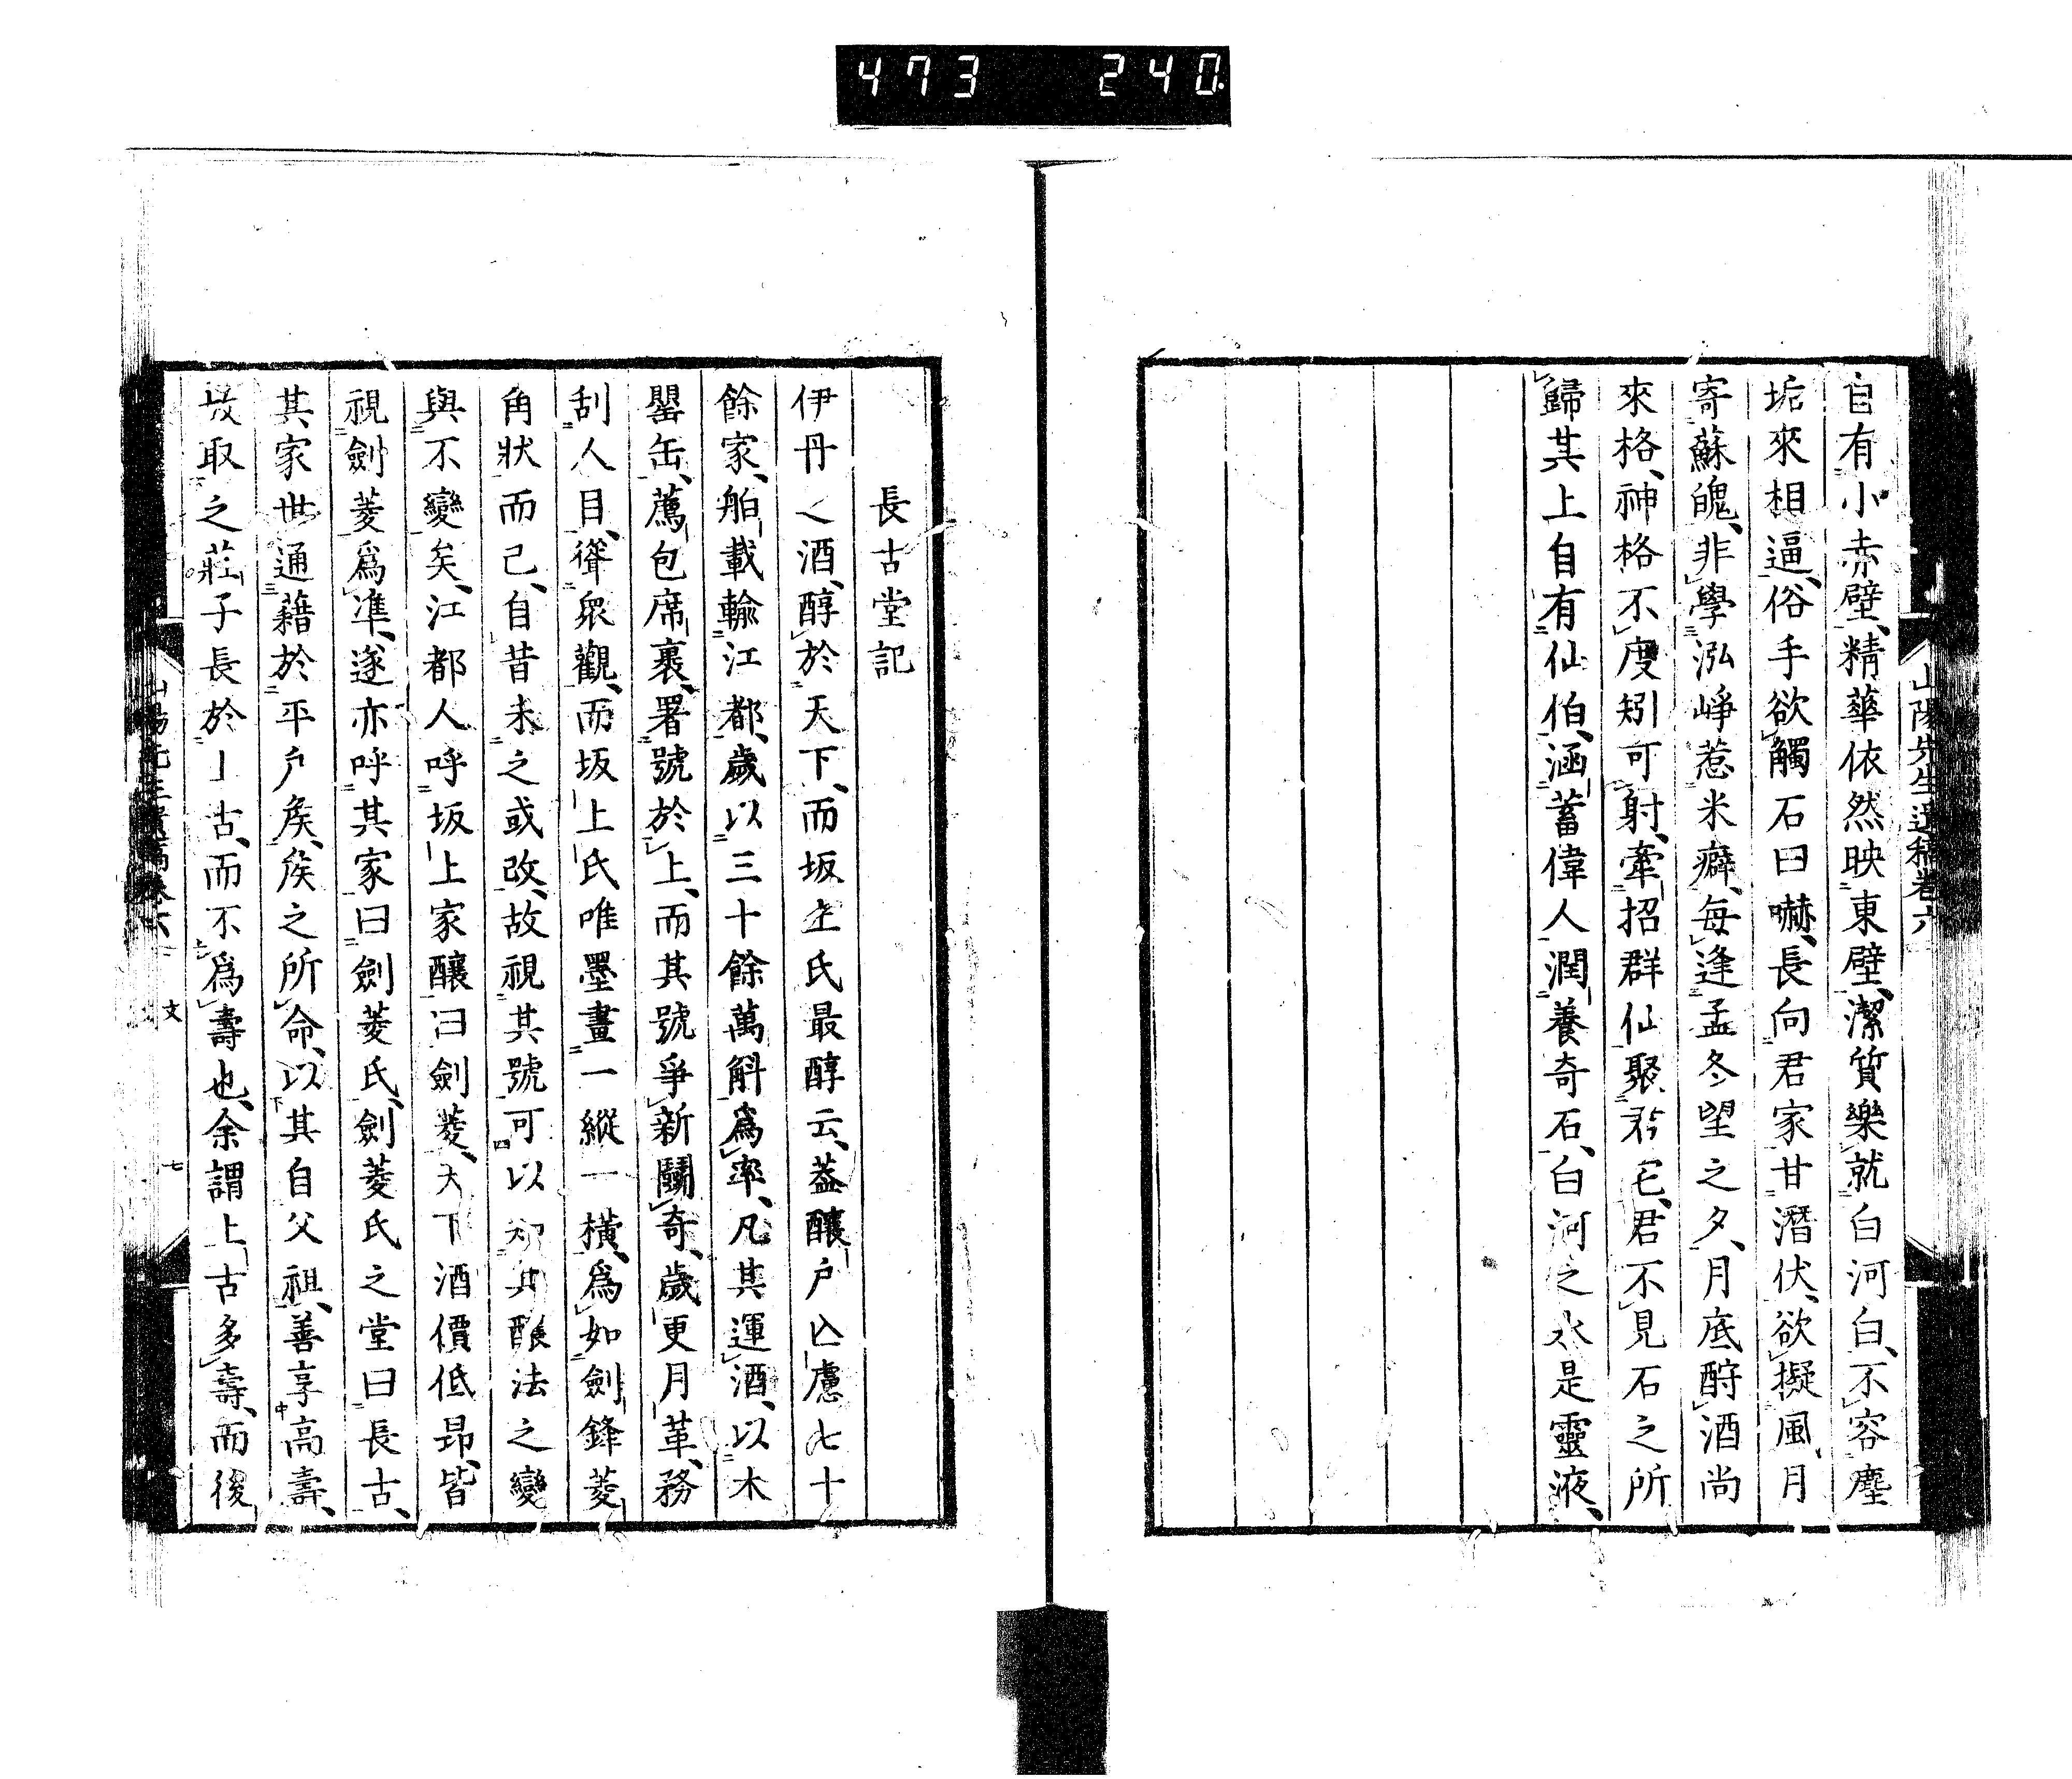 473 240
山陽先生遺稿卷六
自有小赤壁、精華依然映東壁、潔質樂就白河白、不容塵
垢來相逼、俗手欲觸石曰嚇、長向君家甘潛伏、欲擬風月
寄蘇魄、非學泓崢惹米癖、每逢孟冬望之夕、月底酹酒尚
來格、神格不度矧可射、牽招群仙聚君宅、君不見石之所
歸其上自有仙伯、涵蓄偉人潤養奇石、白河之水是靈液、
長古堂記
伊丹之酒、醇於天下、而坂上氏最醇云、蓋釀戶亡慮七十
餘家、舶載輸江都、歲以三十餘萬斛爲率、凡其運酒、以木
罌缶、薦包席裹、署號於上、而其號爭新鬭奇、歲更月革、務
刮人目、聳衆觀、而坂上氏唯墨畫一縱一橫、爲如劍鋒菱
角狀而已、自昔未之或改、故視其號可以知其釀法之變
與不變矣、江都人呼坂上家釀曰劍菱、天下酒價低昂、皆
視劍菱爲準、遂亦呼其家曰劍菱氏、劍菱氏之堂曰長古、
其家世通藉於平戶矦、矦之所命、以其自父祖、善享高壽、
故取之莊子長於上古、而不爲壽也、余謂上古多壽、而後
山陽先生遺稿卷六 文 七